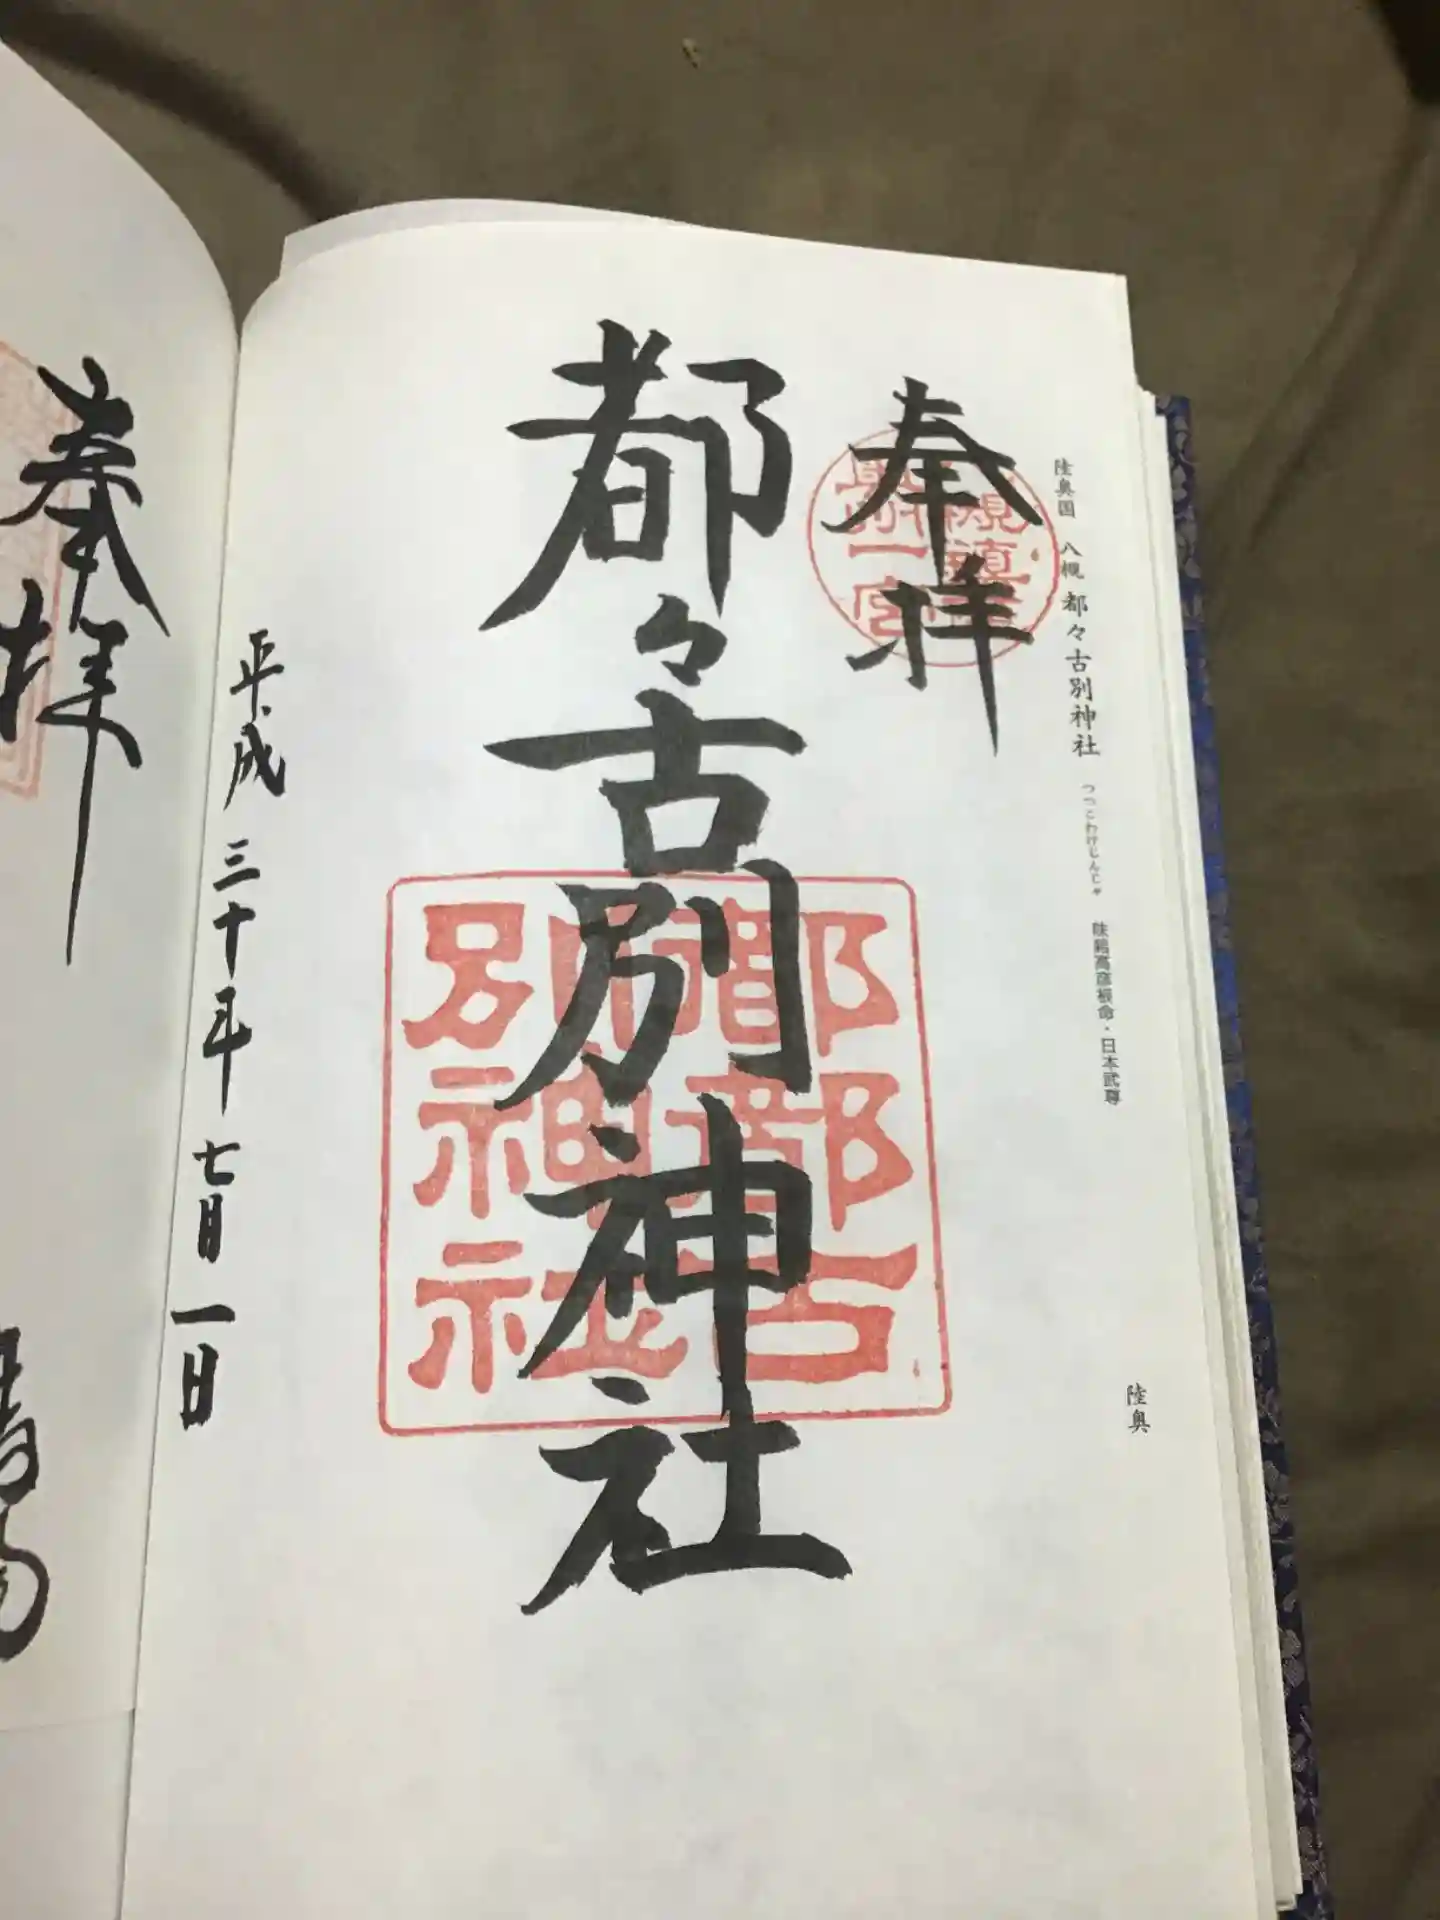 陸奥国 八槻 都々古別神社 つつこわけじんじゃ 味耜高彦根命・日本武尊
陸奥
奉拝
都々古別神社
都都古
別神社
平成三十年七月一日
奉拝